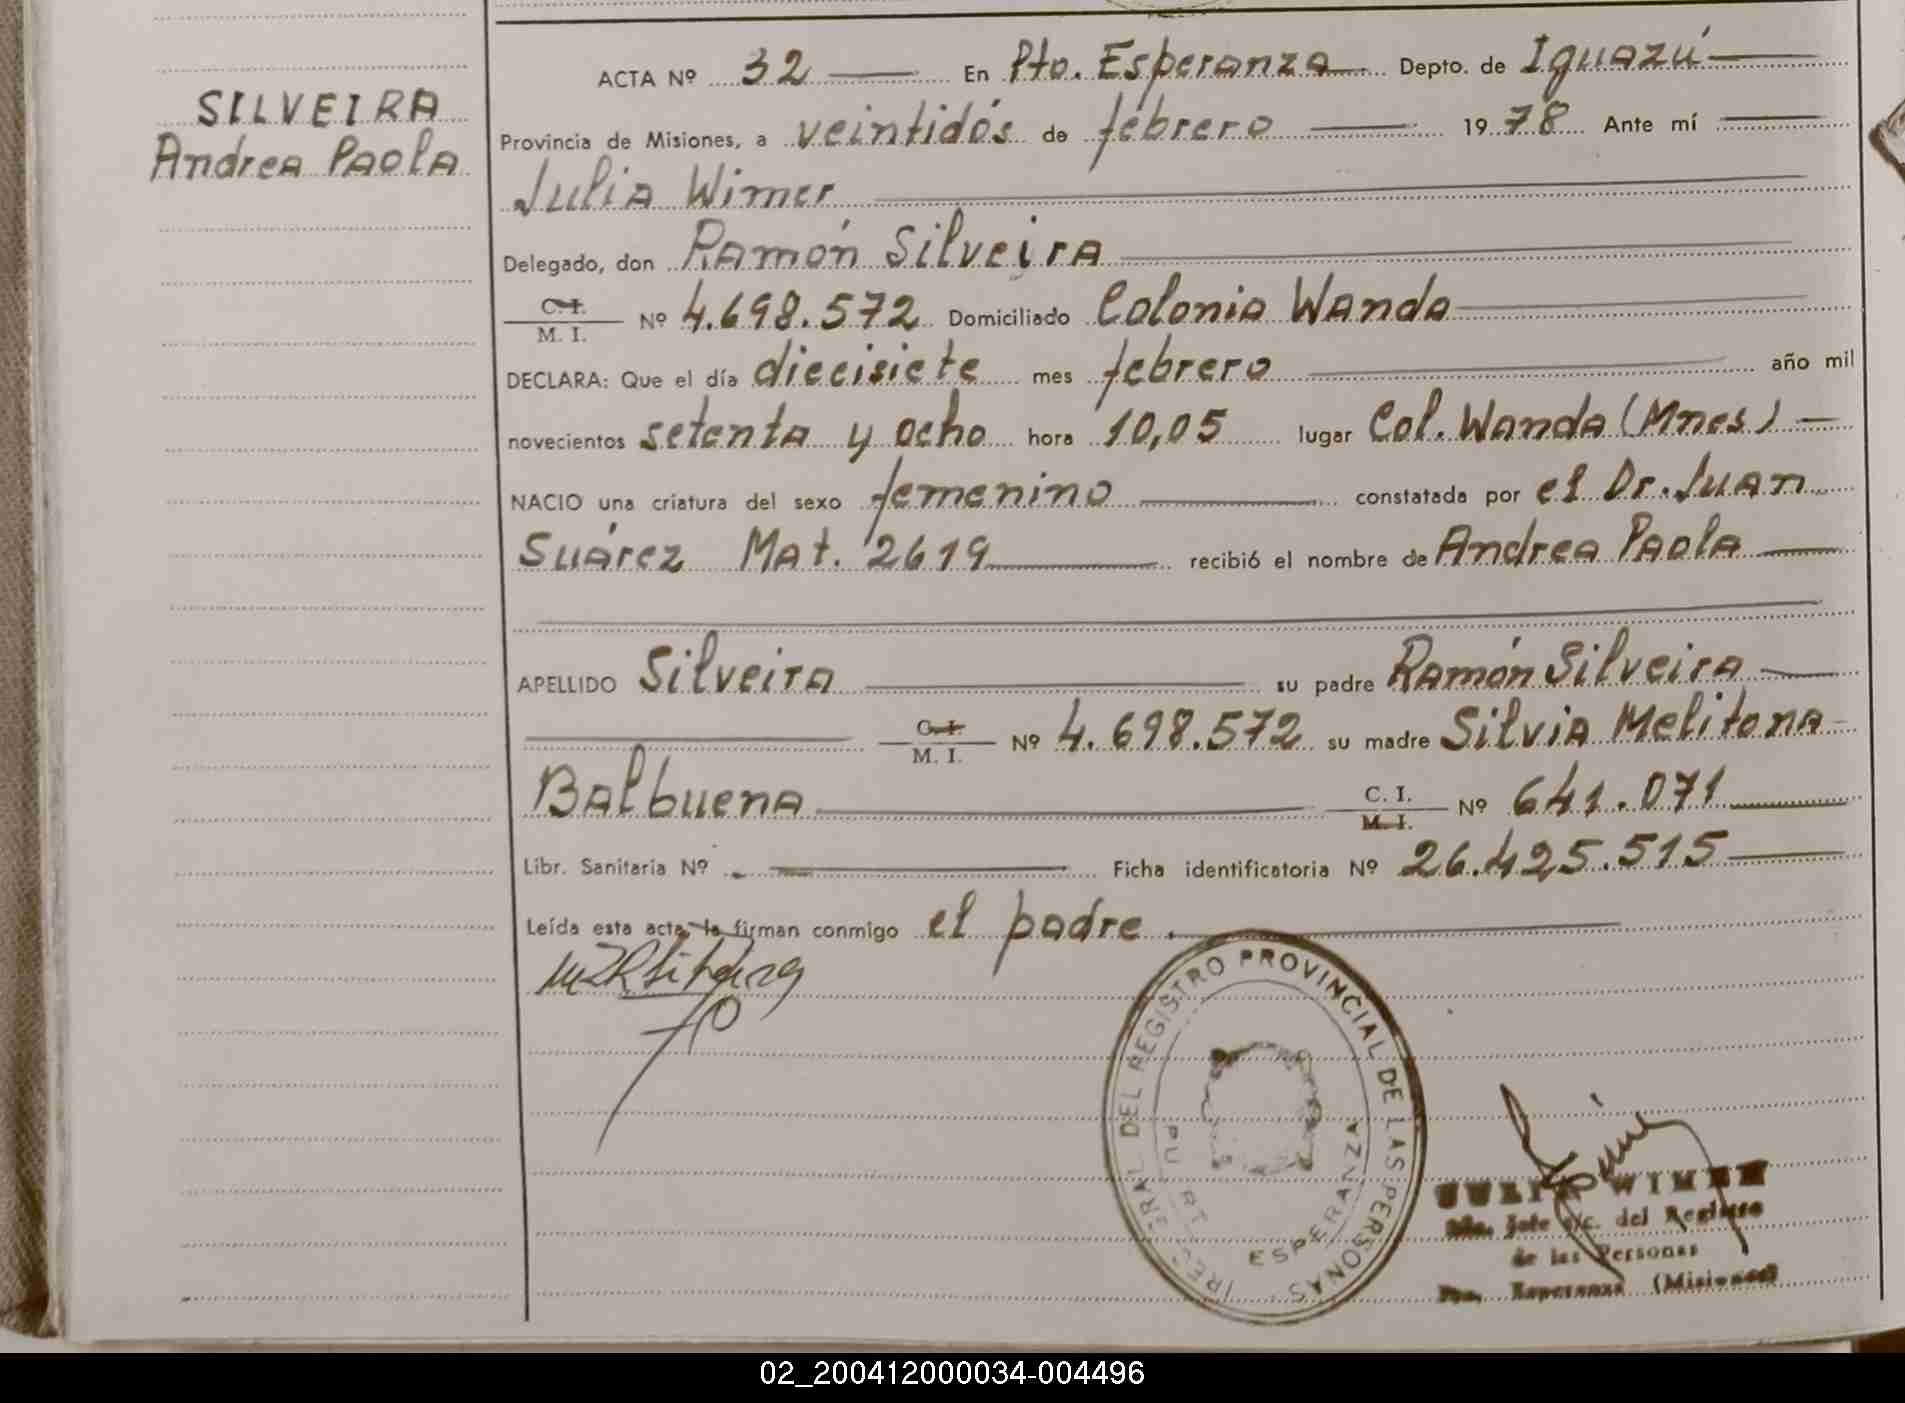 SILVEIRA
Andrea Paola
ACTA Nº 32 En Pto. Esperanza Depto. de Iguazú
Provincia de Misiones, a veintidós de febrero 1978 Ante mí
Julia Wimer
Delegado, don Ramón Silveira
C. I.
M. I. Nº 4.698.572 Domiciliado Colonia Wanda
DECLARA: Que el día diecisiete mes febrero año mil
novecientos setenta y ocho hora 10,05 lugar Col. Wanda (Mnes)
NACIO una criatura del sexo femenino constatada por el Dr. Juan
Suárez Mat. 2619 recibió el nombre de Andrea Paola
APELLIDO Silveira su padre Ramón Silveira
C. I.
M. I. Nº 4.698.572 su madre Silvia Melitona
Balbuena C. I.
M. I. Nº 641.071
Libr. Sanitaria Nº Ficha identificatoria Nº 26.425.515
Leída esta acta, la firman conmigo el padre.
DEL REGISTRO PROVINCIAL DE LAS PERSONAS
ESPERANZA
JULIA WIMER
Jefe a/c. del Registro
de las Personas
Pto. Esperanza (Misiones)
02_200412000034-004496